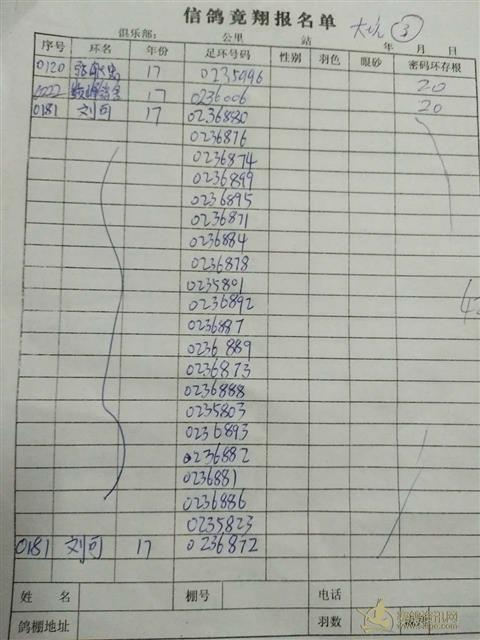 信鸽竟翔报名单 大坑 ③
俱乐部: 公里 站 年 月 日
序号 环名 年份 足环号码 性别 羽色 眼砂 密码环存根
0120 17 0235996
0222 17 0236006 20
0181 刘可 17 0236880 20
0236876
0236874
0236899
0236895
0236871
0236884
0236878
0235801
0236892
0236887
0236889
0236873
0236888
0235803
0236893
0236882
0236881
0236886
0235823
0181 刘可 17 0236872
姓名 棚号 电话
鸽棚地址 羽数